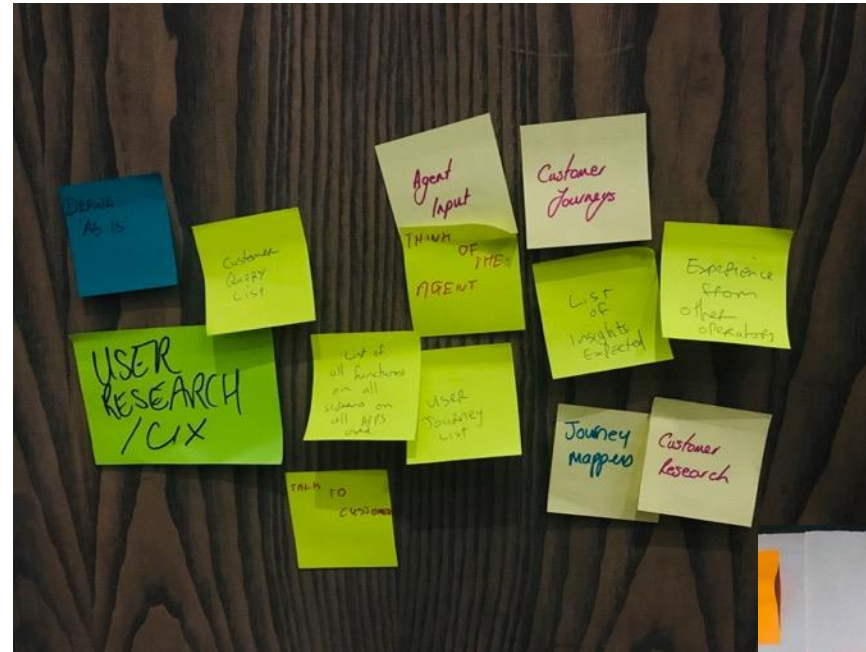 DEFINE
'AS IS
Customer
Query
List
USER
RESEARCH
/CX
Agent
Input
THINK
OF
THE
AGENT
Customer
Journeys
List of
all functions
on all
screens on
all APPS
used
USER
Journey
List
TALK TO
CUSTOMER
List
of
Insights
Expected
Experience
from
other
operators
Journey
Mappers
Customer
Research